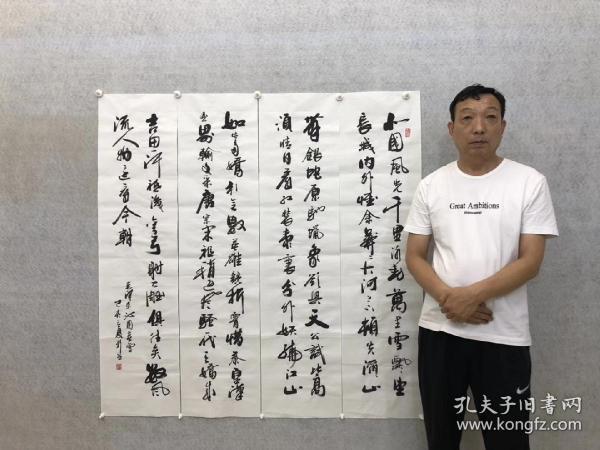 北国風光千里冰封萬里雪飘望
長城内外惟余莽〻大河上下頓失滔〻山
舞銀蛇原馳蜡象欲與天公試比高
須晴日看红装素裹分外妖娆江山
如此多嬌引无數英雄競折腰惜秦皇漢
武略輸文采唐宗宋祖稍逊風騷一代天嬌成
吉思汗祗識弯弓射大雕俱往矣數風
流人物还看今朝
毛澤東沁园春雪
Great Ambitions
孔夫子旧书网
www.kongfz.com